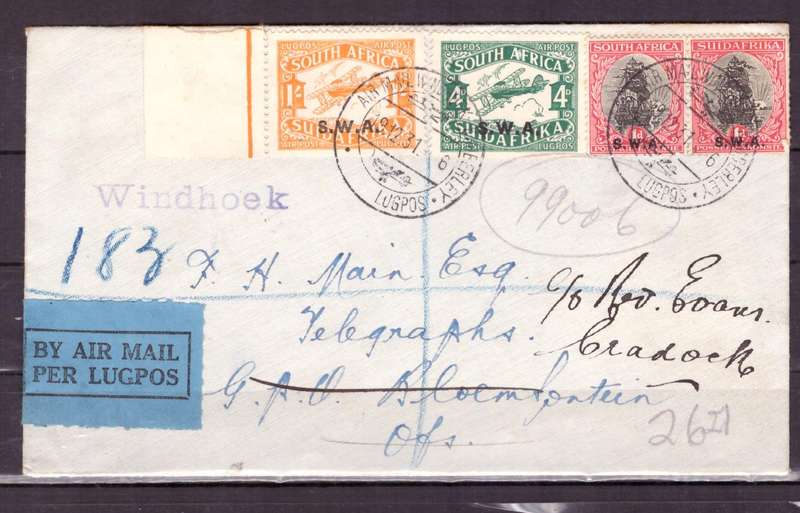 LUGPOS AIR POST
SOUTH AFRICA
1/-
S.W.A.
SUIDAFRIKA
AIR POST LUGPOS
LUGPOS AIR POST
SOUTH AFRICA
4D 4D
S.W.A.
SUIDAFRIKA
AIR POST LUGPOS
SOUTH AFRICA
1D
S.W.A.
SUIDAFRIKA
1D
S.W.A.
LUGPOS
LUGPOS
Windhoek
99006
183
F. H. Main. Esq.
c/o Rev. Evans.
Telegraphs.
Cradock
BY AIR MAIL
PER LUGPOS
G.P.O. Bloemfontein
Ofs.